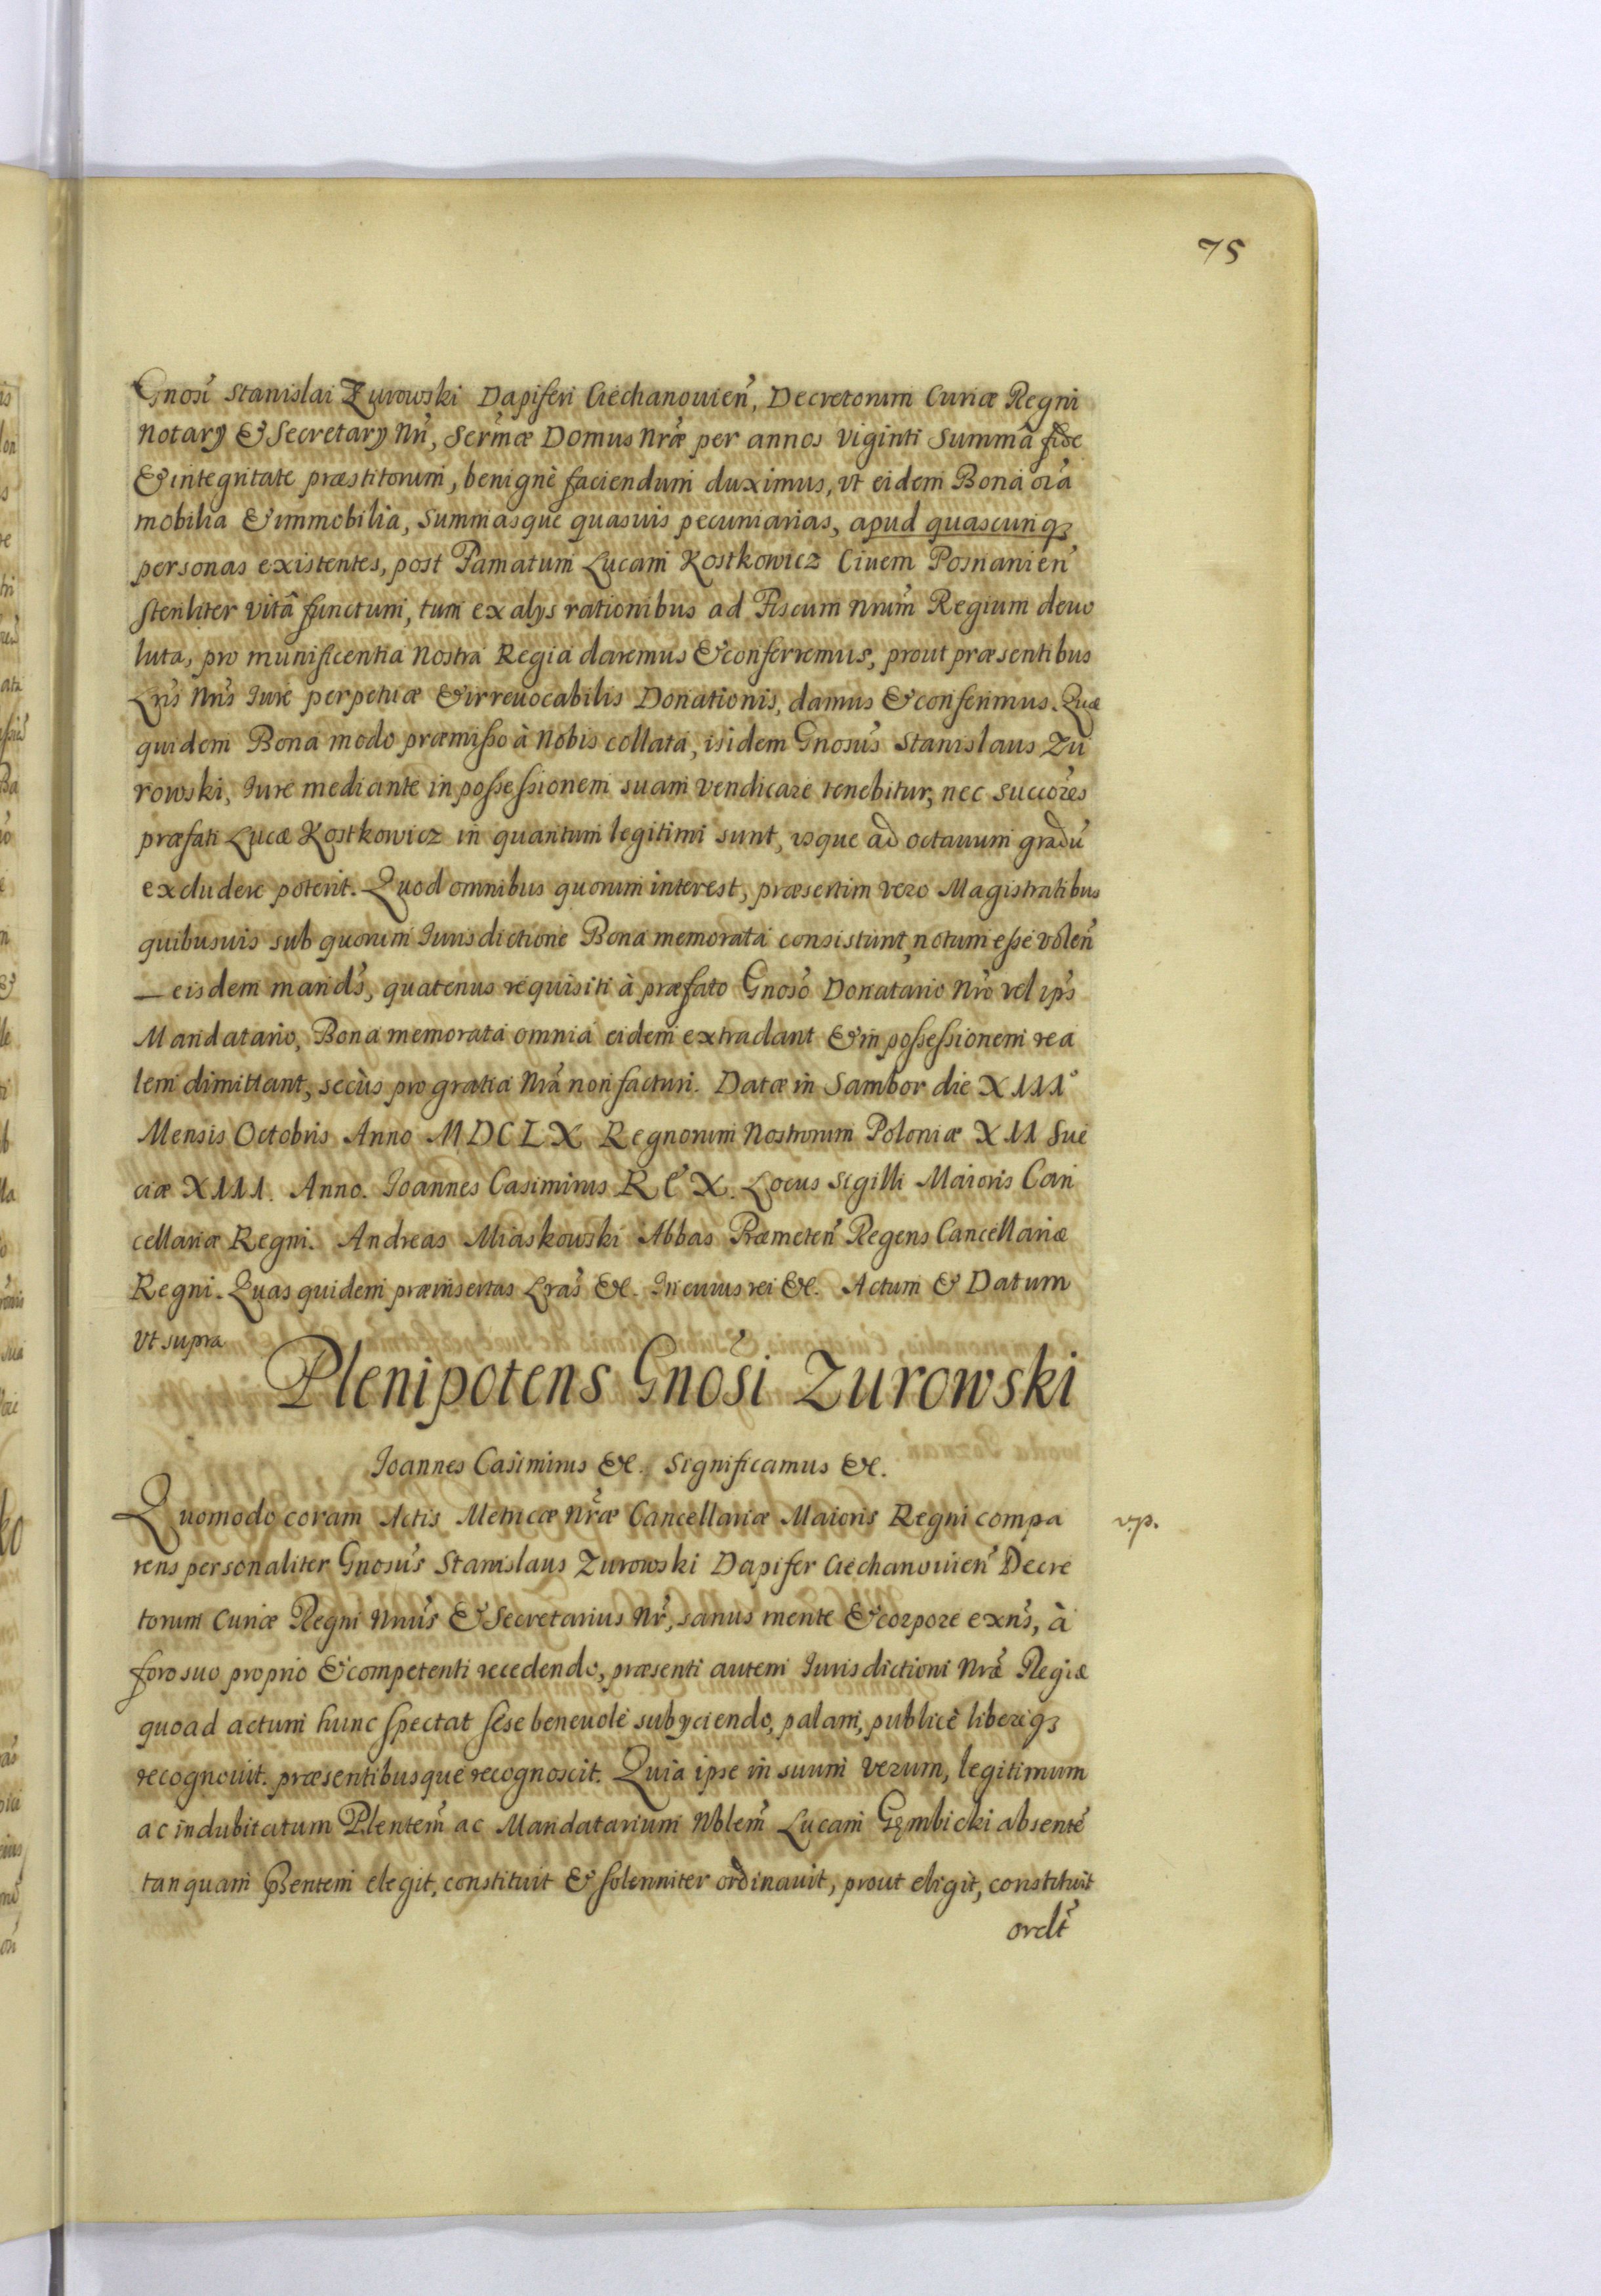 75
Gnosi Stanislai Zurowski Dapiferi Ciechanouien, Decretorum Curiæ Regni
Notary & Secretary Nri, Sermæ Domus Nræ per annos viginti Summâ fide
& integritate præstitorum, benignè faciendum duximus, vt eidem Bona oia
mobilia & immobilia, Summasque quasuis pecuniarias, apud quascunq3
personas existentes, post Famatum Lucam Kostkowicz Ciuem Posnanien
steriliter vitâ functum, tum ex alys rationibus ad Fiscum Nrum Regium deuo
luta, pro munificentia Nostra Regia daremus & conferremus, prout præsentibus
Lris Nris Iure perpetuæ & irreuocabilis Donationis, damus & conferimus. Quæ
quidem Bona modo præmisso à Nobis collata, isidem Gnosus Stanislaus Zu
rowski, Iure mediante in possessionem suam vendicare tenebitur, nec succores
præfati Lucæ Kostkowicz in quantum legitimi sunt, vsque ad octauum gradu
excludere poterit. Quod omnibus quorum interest, præsertim vero Magistratibus
quibusuis sub quorum Iurisdictione Bona memorata consistunt, notum esse volen
— eisdem mands, quatenus requisiti à præfato Gnoso Donatario Nro vel ips
Mandatario, Bona memorata omnia eidem extradant & in possessionem rea
lem dimittant, secùs pro gratia Nra non facturi. Datæ in Sambor die XIII°
Mensis Octobris Anno MDCLX Regnorum Nostrorum Poloniæ XII Sue
ciæ XIII. Anno. Ioannes Casimirus REX. Locus Sigilli Maioris Can
cellariæ Regni. Andreas Miaskowski Abbas Præmeten Regens Cancellariæ
Regni. Quas quidem præinsertas Lras &c. In cuius rei &c. Actum & Datum
vt supra
Plenipotens Gnosi Zurowski
Ioannes Casimirus &c. Significamus &c.
Quomodo coram Actis Metricæ Nræ Cancellariæ Maioris Regni compa
r.p.
rens personaliter Gnosus Stanislaus Zurowski Dapifer Ciechanouien Decre
torum Curiæ Regni Nrius & Secretarius Nr, sanus mente & corpore exns, à
foro suo proprio & competenti recedendo, præsenti autem Iurisdictioni Nræ Regiæ
quoad actum hunc spectat sese beneuolè subyciendo, palam, publicè libereq3
recognouit. præsentibusque recognoscit. Quia ipse in suum verum, legitimum
ac indubitatum Plentem ac Mandatarium Nblem Lucam Gęmbicki absente
tanquam Psentem elegit, constituit & solenniter ordinauit, prout eligit, constituit
ordt